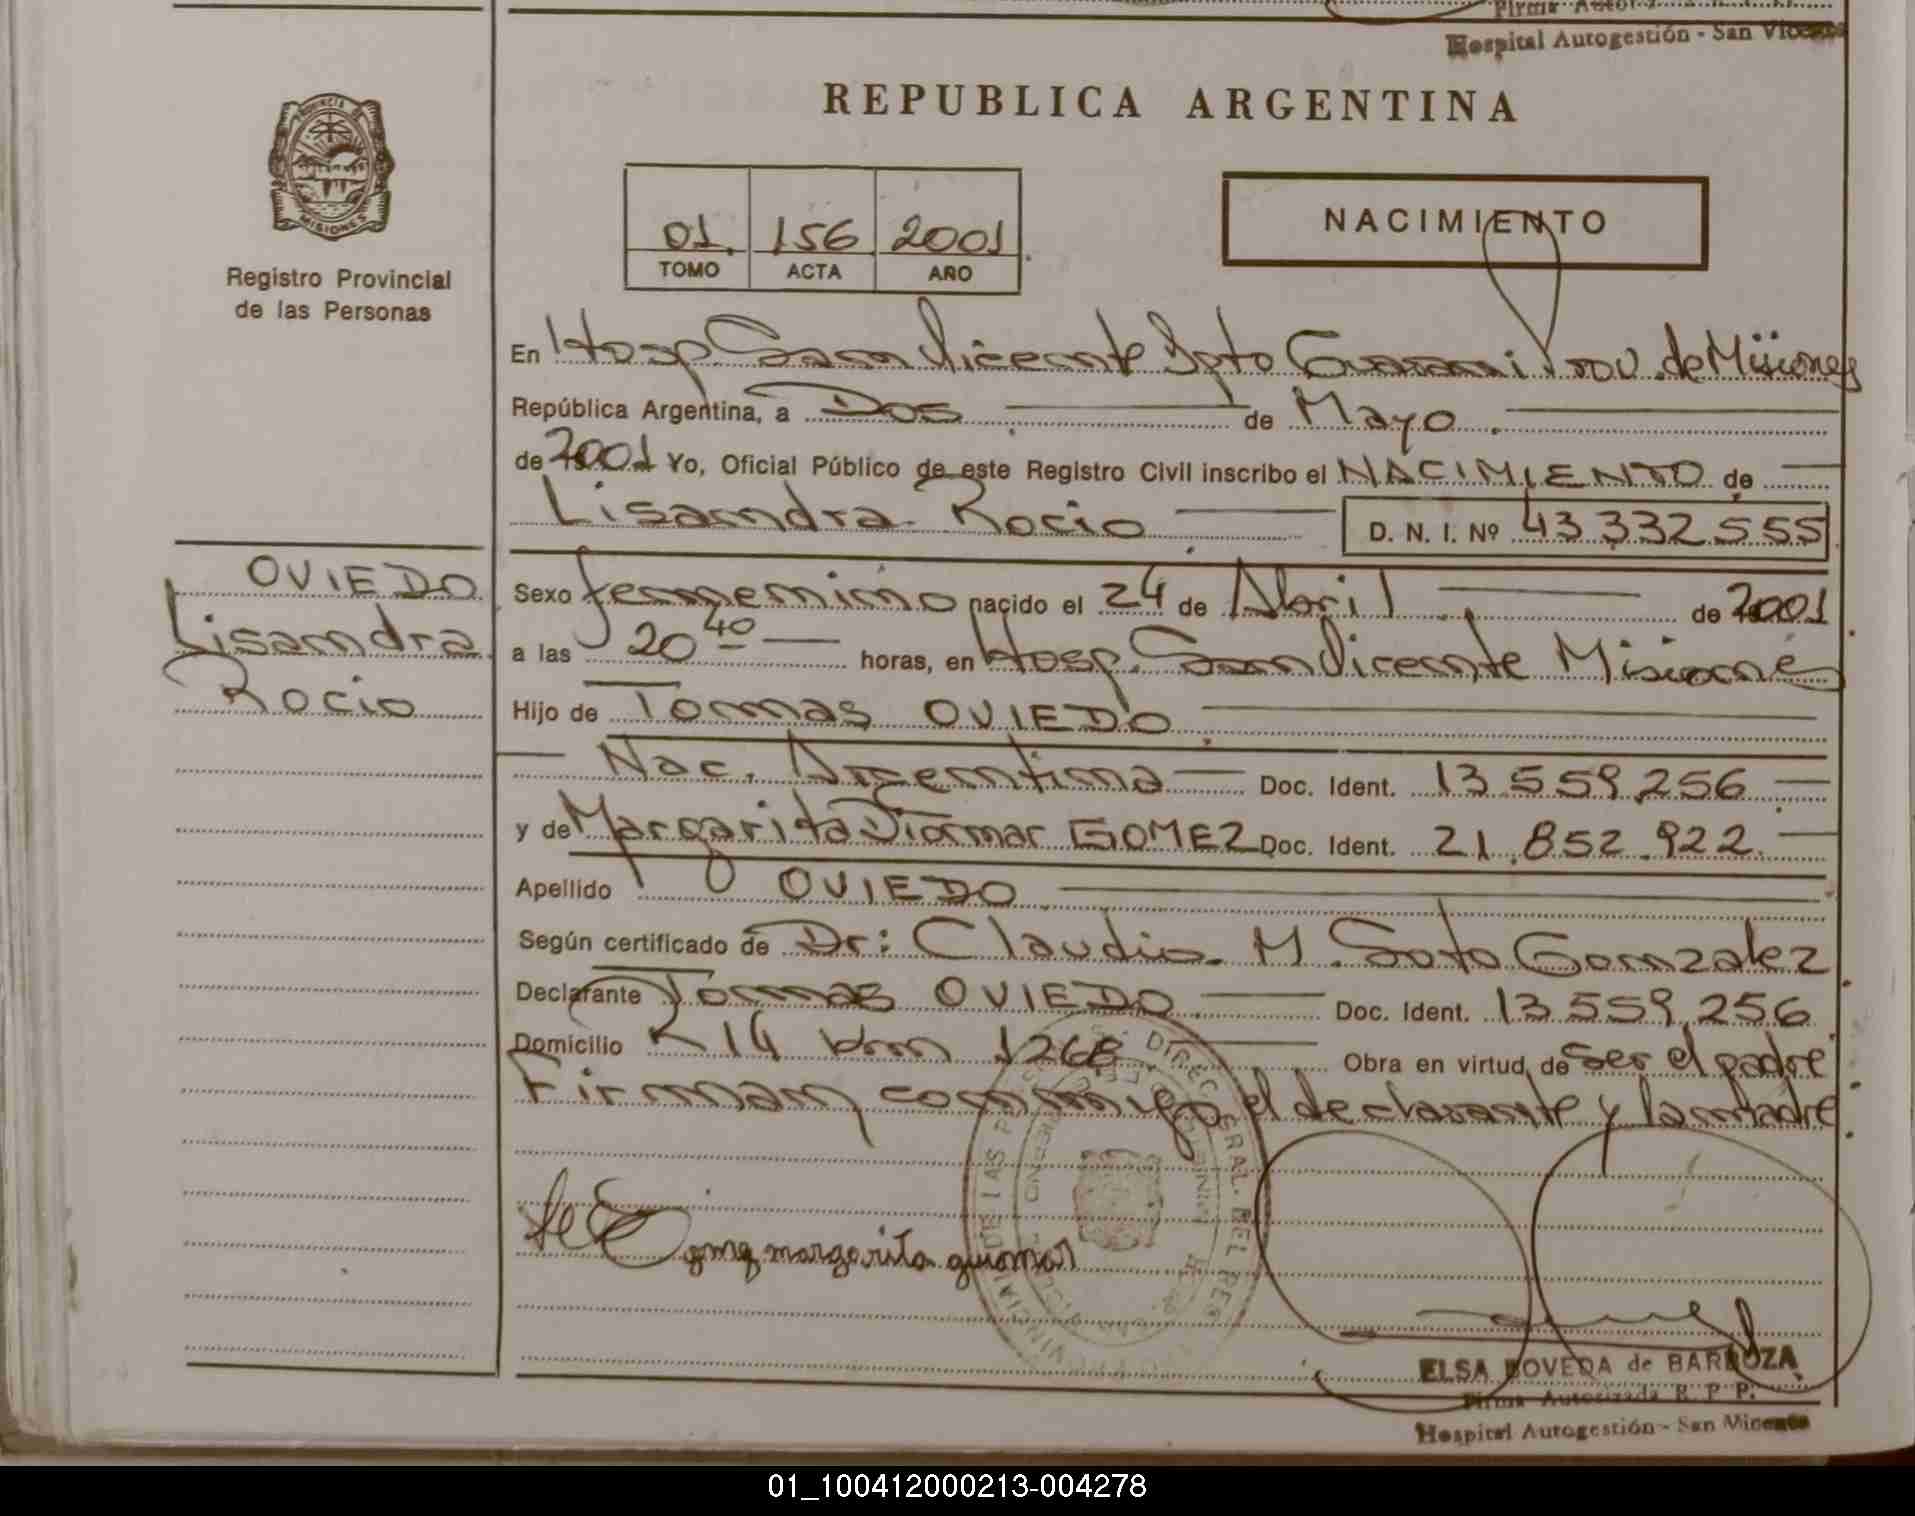 Hospital Autogestión - San Vicente
REPUBLICA ARGENTINA
PROVINCIA DE
MISIONES
Registro Provincial
de las Personas
01 156 2001
TOMO ACTA AÑO
NACIMIENTO
En Hosp San Vicente Dpto Guarani Prov. de Misiones
República Argentina, a Dos de Mayo
de 2001 Yo, Oficial Público de este Registro Civil inscribo el NACIMIENTO de
Lisandra Rocio D. N. I. Nº 43 332 555
OVIEDO
Lisandra
Rocio
Sexo femenino nacido el 24 de Abril de 2001
a las 20 40 horas, en Hosp. San Vicente Misiones
Hijo de Tomas OVIEDO
Nac. Argentina Doc. Ident. 13.559.256
y de Margarita GOMEZ Doc. Ident. 21.852.922
Apellido OVIEDO
Según certificado de Dr: Claudio M. Soto Gonzalez
Declarante Tomas OVIEDO Doc. Ident. 13.559.256
Domicilio R 14 km 1268 Obra en virtud de ser el padre
Firman conmigo el declarante y la madre
margarita guiomar
ELSA BOVEDA de BARBOZA
Firma Autorizada R. P. P.
Hospital Autogestión - San Vicente
01_100412000213-004278